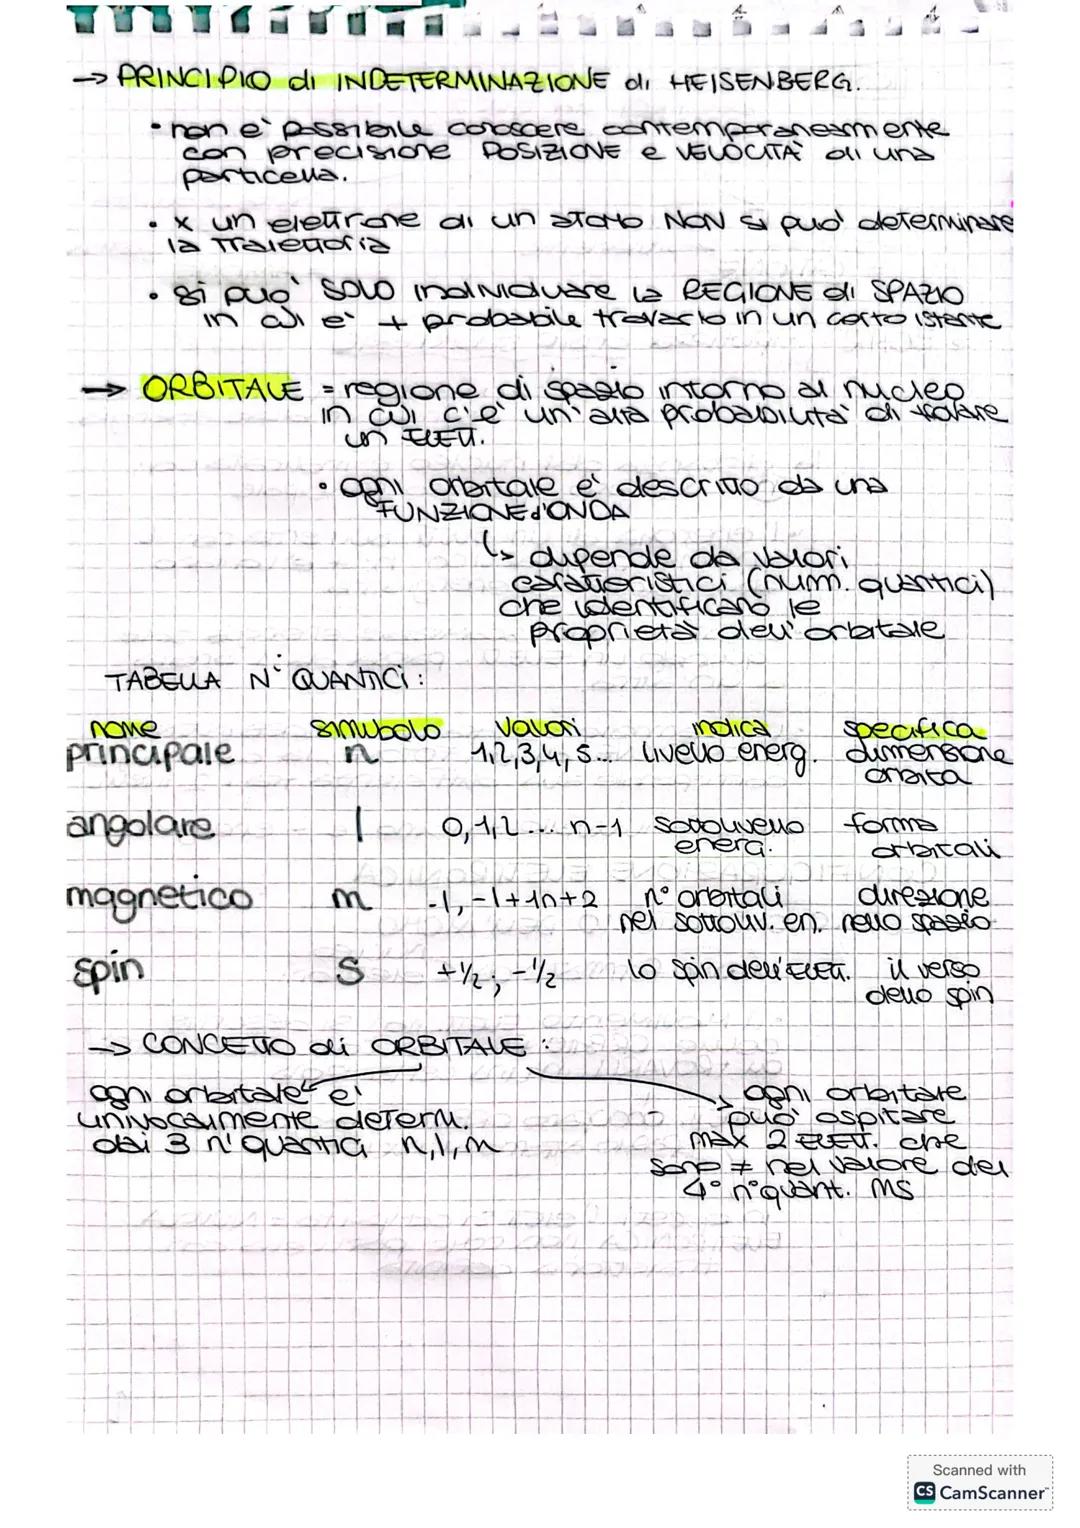 → PRINCIPIO di INDETERMINAZIONE di HEISENBERG.
• non e' possibile conoscere contemporaneamente
con precisione POSIZIONE e VELOCITA' di una
particella.
• x un elettrone di un atomo NON si puo' determinare
la traiettoria
• si puo' SOLO individuare la REGIONE di SPAZIO
in cui e' + probabile trovarlo in un certo istante
→ ORBITALE = regione di spazio intorno al nucleo
in cui c'e' un'alta probabilita' di trovare
un ELETT.
• ogni orbitale e' descritto da una
FUNZIONE d'ONDA
↳ dipende da valori
caratteristici (num. quantici)
che identificano le
proprieta' dell'orbitale
TABELLA N° QUANTICI:
nome simbolo valori indica specifica
principale n 1,2,3,4,5... livello energ. dimensione
orbita
angolare l 0,1,2... n-1 sottolivello forma
energ. orbitali
magnetico m -l, -l+1n+2 n° orbitali direzione
nel sottoliv. en. nello spazio
spin s +1/2; -1/2 lo spin dell'ELETT. il verso
dello spin
→ CONCETTO di ORBITALE:
ogni orbitale e' ogni orbitale
univocamente determ. puo' ospitare
dai 3 n° quantici n,l,m max 2 ELETT. che
sono ≠ nel valore del
4° n°quant. MS
Scanned with
CS CamScanner